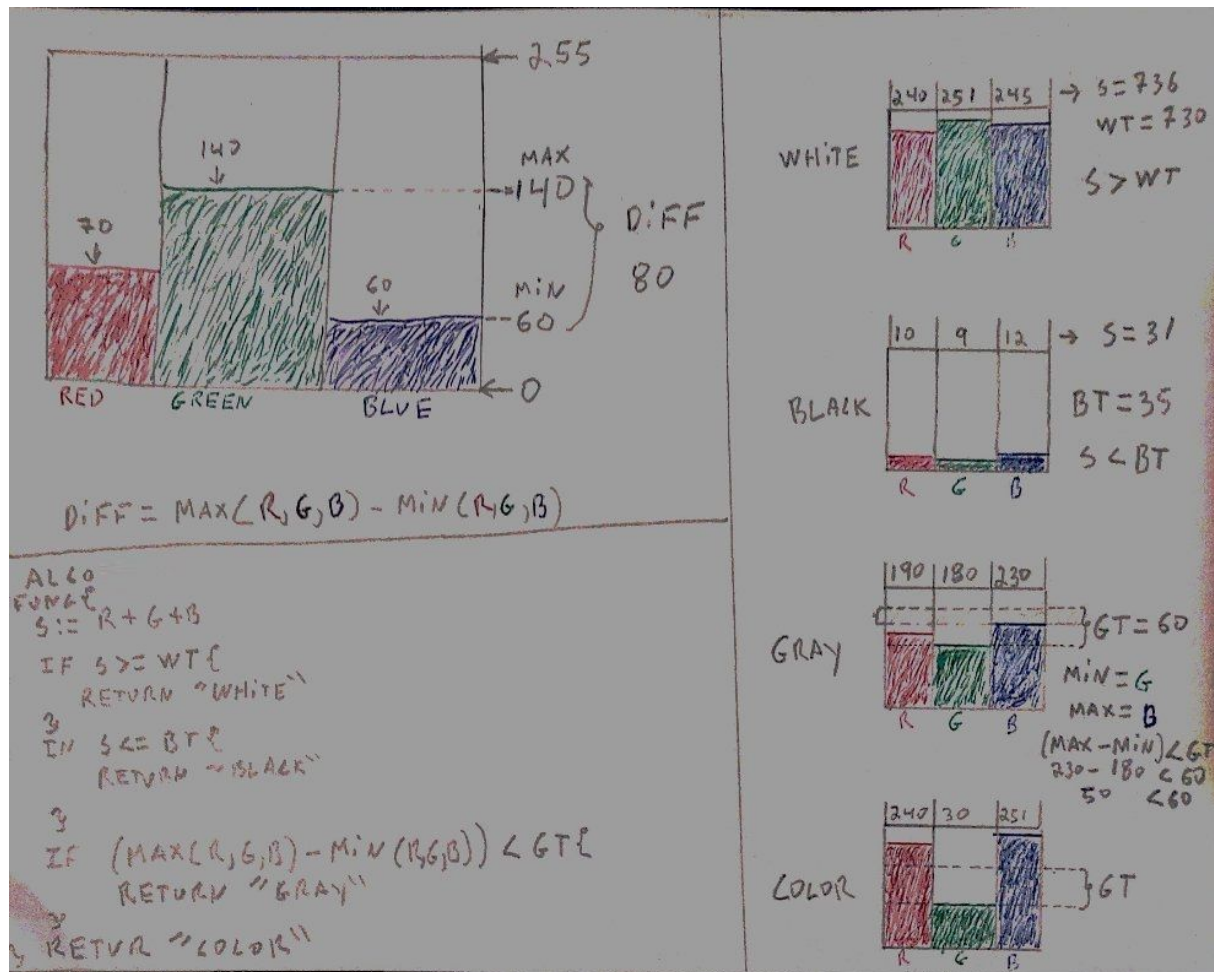 ← 255
140
↓
MAX
140
70
↓
DiFF
80
60
↓
MiN
60
← 0
RED GREEN BLUE
DiFF = MAX(R,G,B) - MiN(R,G,B)
ALGO
FUNC{
S:= R+G+B
IF S>= WT{
RETURN "WHiTE"
}
IN S<= BT{
RETURN "BLACK"
}
IF (MAX(R,G,B)-MiN(R,G,B)) < GT{
RETURN "GRAY"
}
} RETUR "COLOR"
240 251 245 → S=736
WT=730
WHiTE
S>WT
R G B
10 9 12 → S=31
BT=35
BLACK
S<BT
R G B
190 180 230
GT=60
GRAY
MiN=G
R G B
MAX=B
(MAX-MiN)<GT
230-180 <60
50 <60
240 30 251
COLOR
GT
R G B